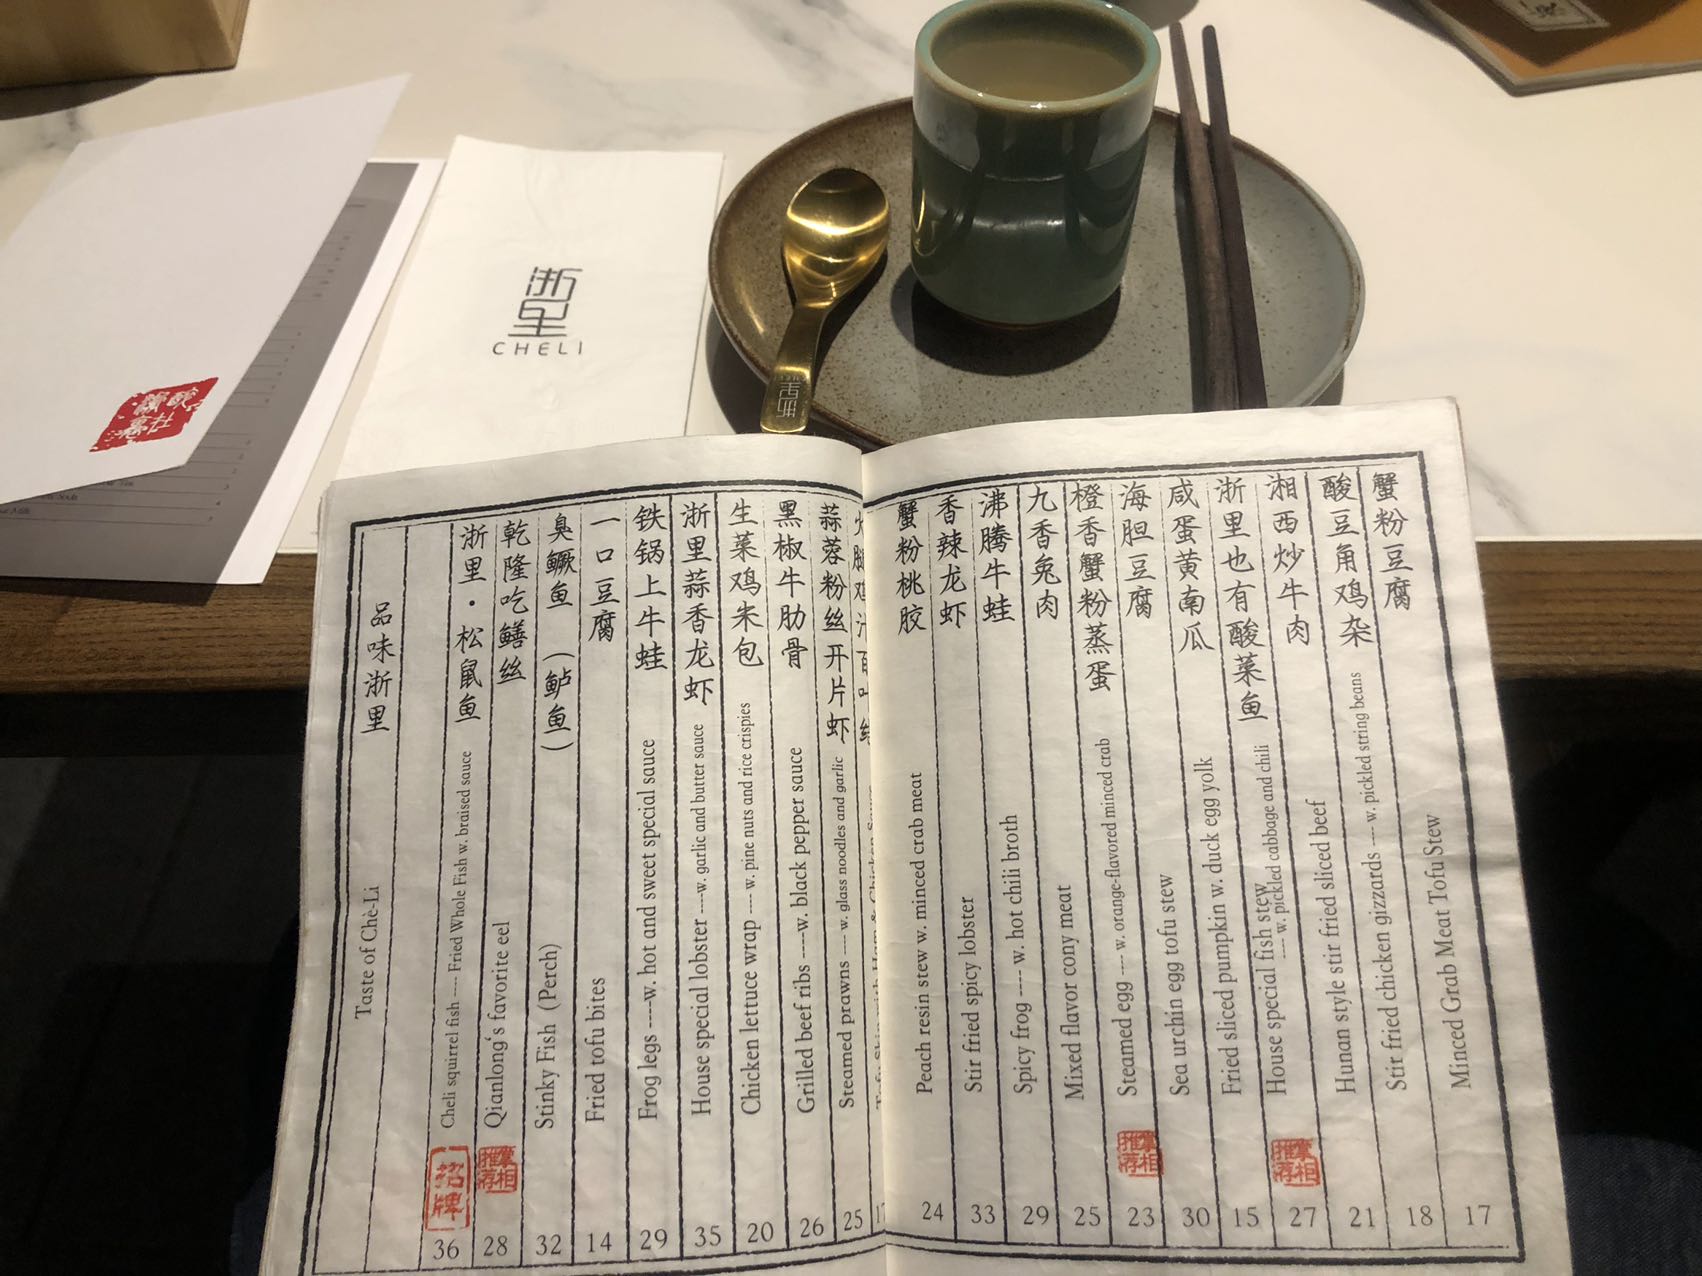 浙里
CHELI
品味浙里
Taste of Chè-Li
浙里·松鼠鱼
Cheli squirrel fish ---- Fried Whole Fish w. braised sauce
招牌
36
乾隆吃鳝丝
Qianlong's favorite eel
掌柜推荐
28
臭鳜鱼 (鲈鱼)
Stinky Fish (Perch)
32
一口豆腐
Fried tofu bites
14
铁锅上牛蛙
Frog legs ----w. hot and sweet special sauce
29
浙里蒜香龙虾
House special lobster ----w. garlic and butter sauce
35
生菜鸡米包
Chicken lettuce wrap ---- w. pine nuts and rice crispies
20
黑椒牛肋骨
Grilled beef ribs ----w. black pepper sauce
26
蒜蓉粉丝开片虾
Steamed prawns ---- w. glass noodles and garlic
25
火腿鸡汁百叶结
17
蟹粉桃胶
Peach resin stew w. minced crab meat
24
香辣龙虾
Stir fried spicy lobster
33
沸腾牛蛙
Spicy frog ---- w. hot chili broth
29
九香兔肉
Mixed flavor cony meat
25
橙香蟹粉蒸蛋
Steamed egg ---- w. orange-flavored minced crab
掌柜推荐
23
海胆豆腐
Sea urchin egg tofu stew
30
咸蛋黄南瓜
Fried sliced pumpkin w. duck egg yolk
15
浙里也有酸菜鱼
House special fish stew
---- w. pickled cabbage and chili
掌柜推荐
27
湘西炒牛肉
Hunan style stir fried sliced beef
21
酸豆角鸡杂
Stir fried chicken gizzards ---- w. pickled string beans
18
蟹粉豆腐
Minced Grab Meat Tofu Stew
17